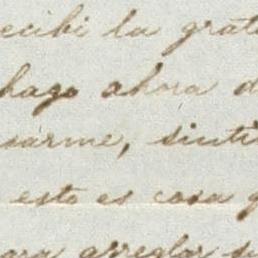 ecibi la grat
hago ahora d
sarme, sinti
esto es cosa q
ara arreglar su